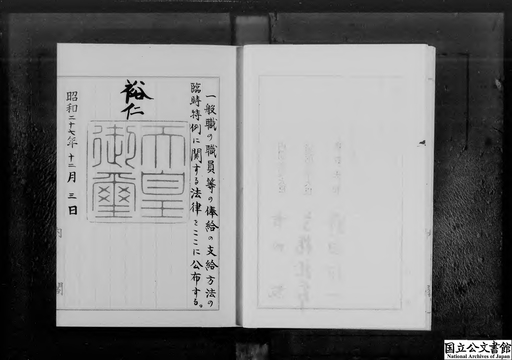 一般職の職員等の俸給の支給方法の
臨時特例に関する法律をここに公布する。
裕仁
天皇
御璽
昭和二十七年十二月三日
内閣
国立公文書館
National Archives of Japan